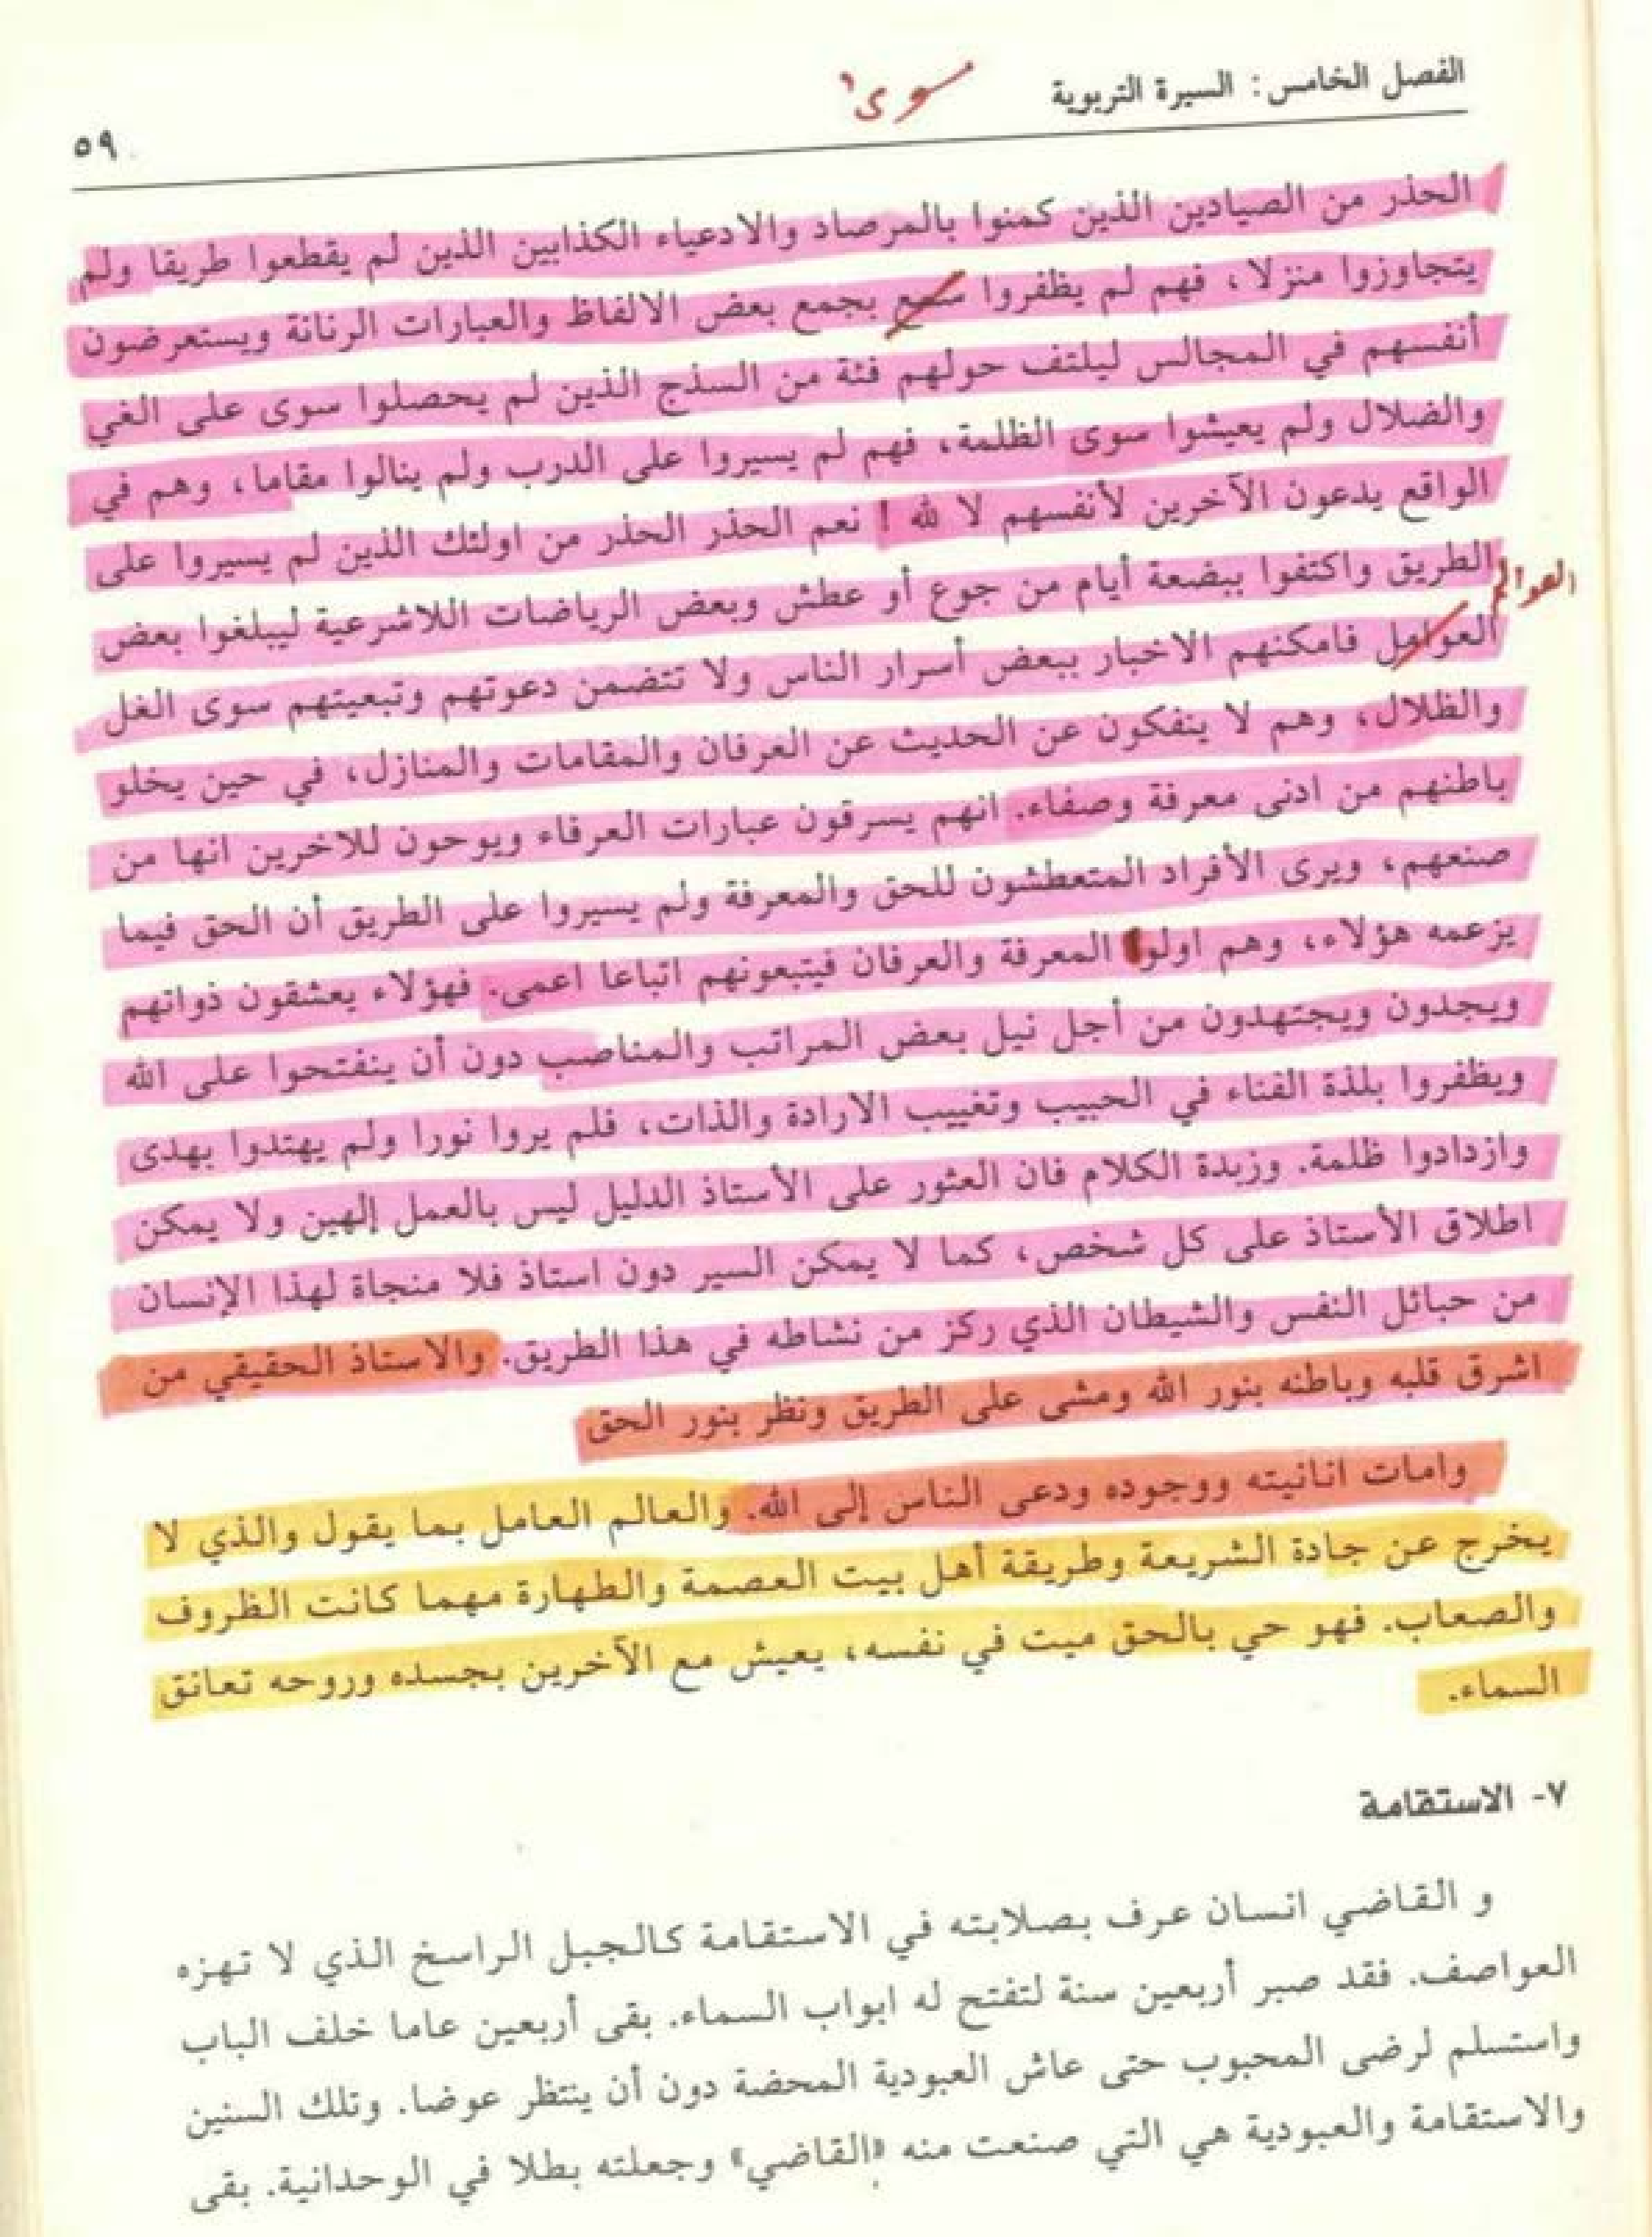 الفصل الخامس: السيرة التربوية
سوى
٥٩
الحذر من الصيادين الذين كمنوا بالمرصاد والادعياء الكذابين الذين لم يقطعوا طريقا ولم
يتجاوزوا منزلا، فهم لم يظفروا بجمع بعض الالفاظ والعبارات الرنانة ويستعرضون
أنفسهم في المجالس ليلتف حولهم فئة من السذج الذين لم يحصلوا سوى على الغي
والضلال ولم يعيشوا سوى الظلمة، فهم لم يسيروا على الدرب ولم ينالوا مقاما، وهم في
الواقع يدعون الآخرين لأنفسهم لا لله ! نعم الحذر الحذر من اولئك الذين لم يسيروا على
الطريق واكتفوا ببضعة أيام من جوع أو عطش وبعض الرياضات اللاشرعية ليبلغوا بعض
العوالم
العوامل فامكنهم الاخبار ببعض أسرار الناس ولا تتضمن دعوتهم وتبعيتهم سوى الغل
والظلال، وهم لا ينفكون عن الحديث عن العرفان والمقامات والمنازل، في حين يخلو
باطنهم من ادنى معرفة وصفاء. انهم يسرقون عبارات العرفاء ويوحون للآخرين انها من
صنعهم، ويرى الأفراد المتعطشون للحق والمعرفة ولم يسيروا على الطريق أن الحق فيما
يزعمه هؤلاء، وهم اولوا المعرفة والعرفان فيتبعونهم اتباعا اعمى. فهؤلاء يعشقون ذواتهم
ويجدون ويجتهدون من أجل نيل بعض المراتب والمناصب دون أن ينفتحوا على الله
ويظفروا بلذة الفناء في الحبيب وتغييب الارادة والذات، فلم يروا نورا ولم يهتدوا بهدى
وازدادوا ظلمة. وزبدة الكلام فان العثور على الأستاذ الدليل ليس بالعمل إلهين ولا يمكن
اطلاق الأستاذ على كل شخص، كما لا يمكن السير دون استاذ فلا منجاة لهذا الإنسان
من حبائل النفس والشيطان الذي ركز من نشاطه في هذا الطريق. والاستاذ الحقيقي من
اشرق قلبه وباطنه بنور الله ومشى على الطريق ونظر بنور الحق
وامات انانيته ووجوده ودعى الناس إلى الله. والعالم العامل بما يقول والذي لا
يخرج عن جادة الشريعة وطريقة أهل بيت العصمة والطهارة مهما كانت الظروف
والصعاب. فهو حي بالحق ميت في نفسه، يعيش مع الآخرين بجسده وروحه تعانق
السماء.
٧- الاستقامة
و القاضي انسان عرف بصلابته في الاستقامة كالجبل الراسخ الذي لا تهزه
العواصف. فقد صبر أربعين سنة لتفتح له ابواب السماء. بقى أربعين عاما خلف الباب
واستسلم لرضى المحبوب حتى عاش العبودية المحضة دون أن ينتظر عوضا. وتلك السنين
والاستقامة والعبودية هي التي صنعت منه «القاضي» وجعلته بطلا في الوحدانية. بقى